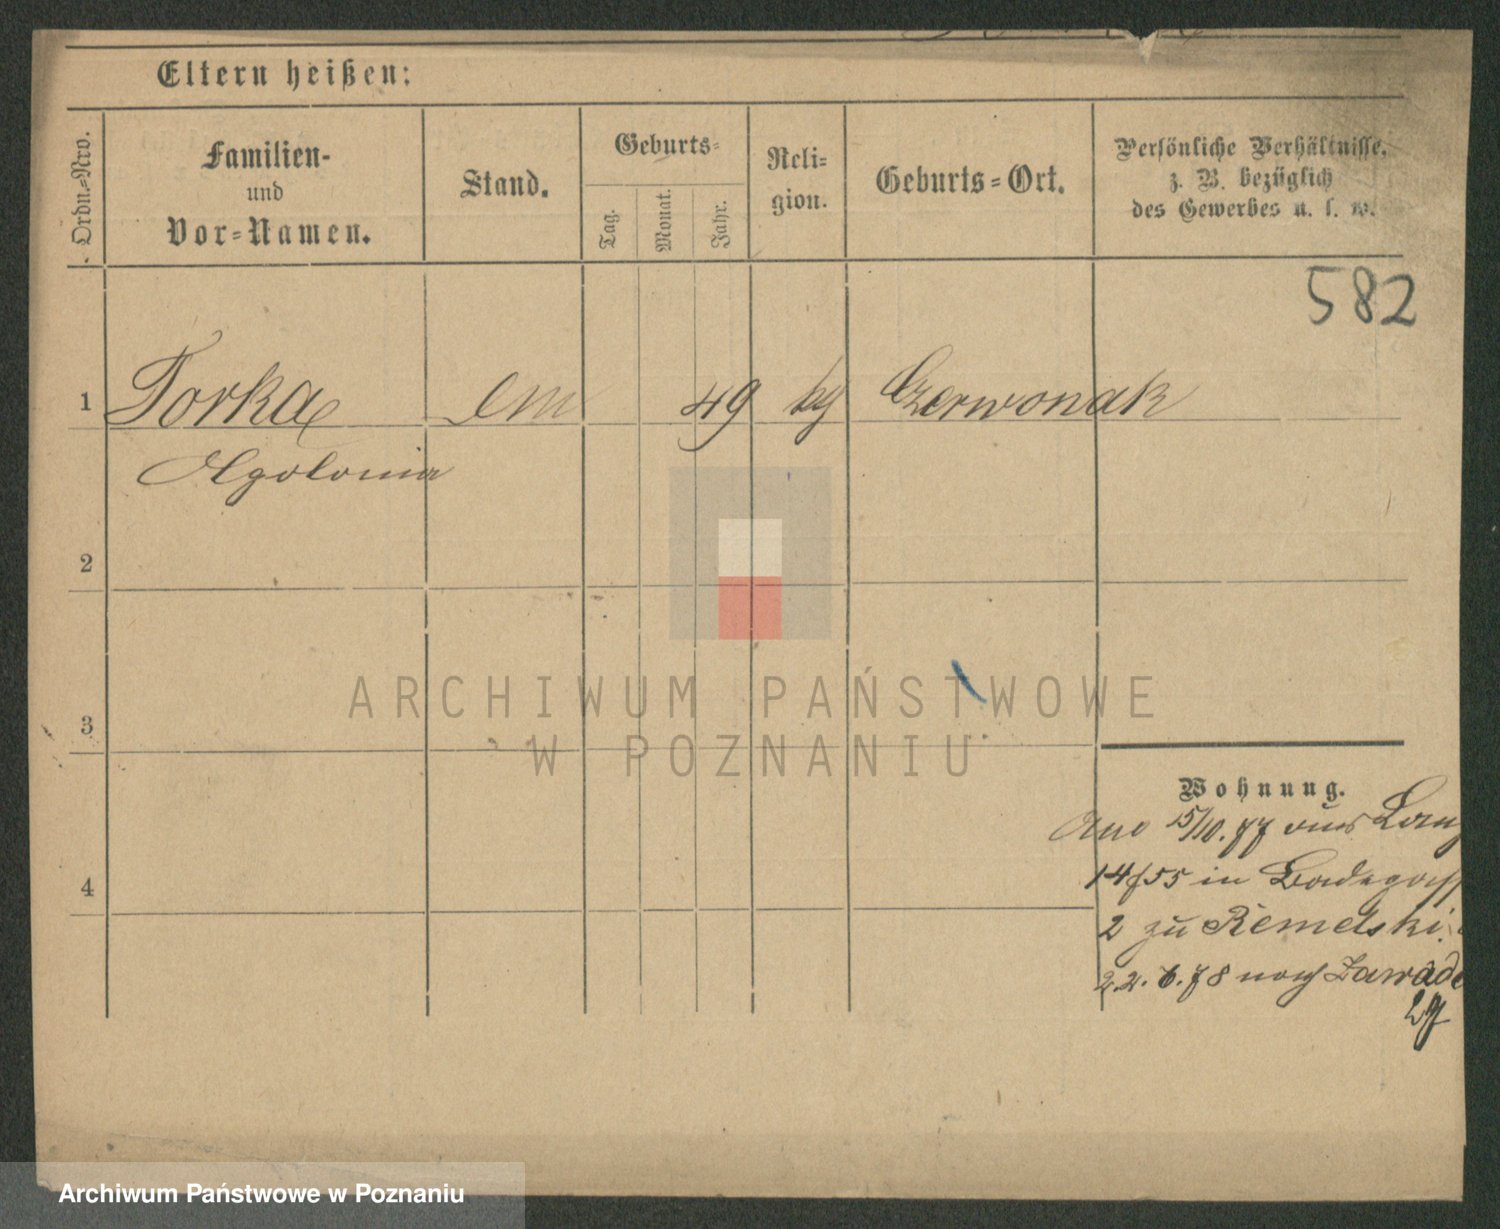 Eltern heißen:
Ordn.-Nro.
Familien-
und
Vor-Namen.
Stand.
Geburts-
Tag.
Monat.
Jahr.
Reli-
gion.
Geburts-Ort.
Persönliche Verhältnisse,
z. B. bezüglich
des Gewerbes u. s. w.
582
1 Torka 49 Czerwonak
Agolonia
2
3
ARCHIWUM PAŃSTWOWE
W POZNANIU
Wohnung.
15/10. 77 aus Lang
14/55 in Badegass
4
2 zu Remelski
22. 6. 78 nach Zawade
Archiwum Państwowe w Poznaniu